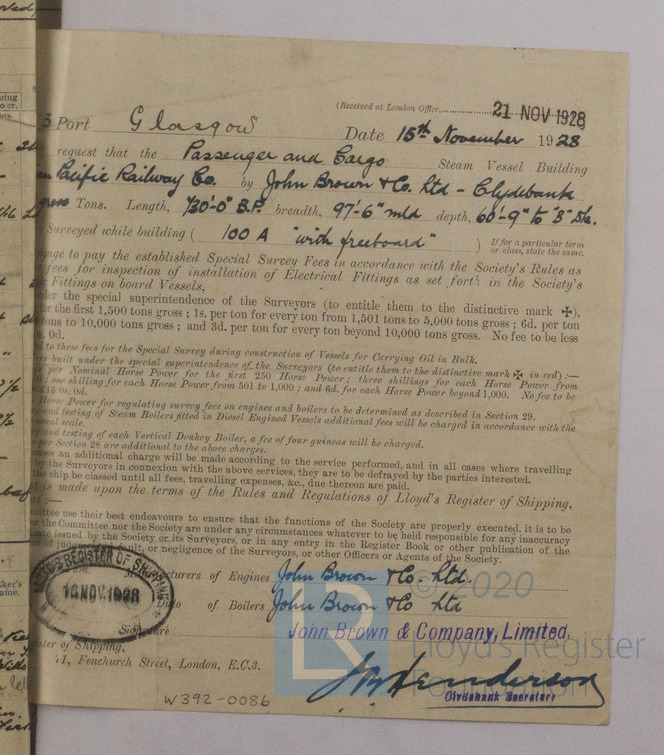 (Received at London Office,
21 NOV 1928
3 Port Glasgow Date 15th November 1928
request that the Passenger and Cargo Steam Vessel Building
Pacific Railway Co. by John Brown & Co. Ltd - Clydebank
gross Tons. Length, 730'-0" B.P. breadth, 97'-6" mld depth, 60'-9" to "B" Dk.
Surveyed while building ( 100 A "with freeboard" ) If for a particular term
or class, state the same.
to pay the established Special Survey Fees in accordance with the Society's Rules as
fees for inspection of installation of Electrical Fittings as set forth in the Society's
Fittings on board Vessels,
the special superintendence of the Surveyors (to entitle them to the distinctive mark ✠),
for the first 1,500 tons gross ; 1s. per ton for every ton from 1,501 tons to 5,000 tons gross ; 6d. per ton
tons to 10,000 tons gross ; and 3d. per ton for every ton beyond 10,000 tons gross. No fee to be less
0d.
to these fees for the Special Survey during construction of Vessels for Carrying Oil in Bulk.
built under the special superintendence of the Surveyors (to entitle them to the distinctive mark ✠ in red) :—
per Nominal Horse Power for the first 250 Horse Power ; three shillings for each Horse Power from
one shilling for each Horse Power from 501 to 1,000 ; and 6d. for each Horse Power beyond 1,000. No fee to be
£15 0s. 0d.
Horse Power for regulating survey fee on engines and boilers to be determined as described in Section 29.
and testing of Steam Boilers fitted in Diesel Engined Vessels additional fees will be charged in accordance with the
usual scale.
and testing of each Vertical Donkey Boiler, a fee of four guineas will be charged.
per Section 28 are additional to the above charges.
an additional charge will be made according to the service performed, and in all cases where travelling
by the Surveyors in connexion with the above services, they are to be defrayed by the parties interested.
the ship be classed until all fees, travelling expenses, &c., due thereon are paid.
is made upon the terms of the Rules and Regulations of Lloyd's Register of Shipping,
:—
use their best endeavours to ensure that the functions of the Society are properly executed, it is to be
the Committee nor the Society are under any circumstances whatever to be held responsible for any inaccuracy
issued by the Society or its Surveyors, or in any entry in the Register Book or other publication of the
of judgment, default, or negligence of the Surveyors, or other Officers or Agents of the Society.
LLOYD'S REGISTER OF SHIPPING
14 NOV. 1928
Manufacturers of Engines John Brown & Co. Ltd.
Ditto of Boilers John Brown & Co Ltd
© 2020
Signature
John Brown & Company, Limited,
LR
Lloyd's Register
Foundation
of Shipping,
71, Fenchurch Street, London, E.C.3.
J M Henderson
Clydebank Secretary
W392-0086